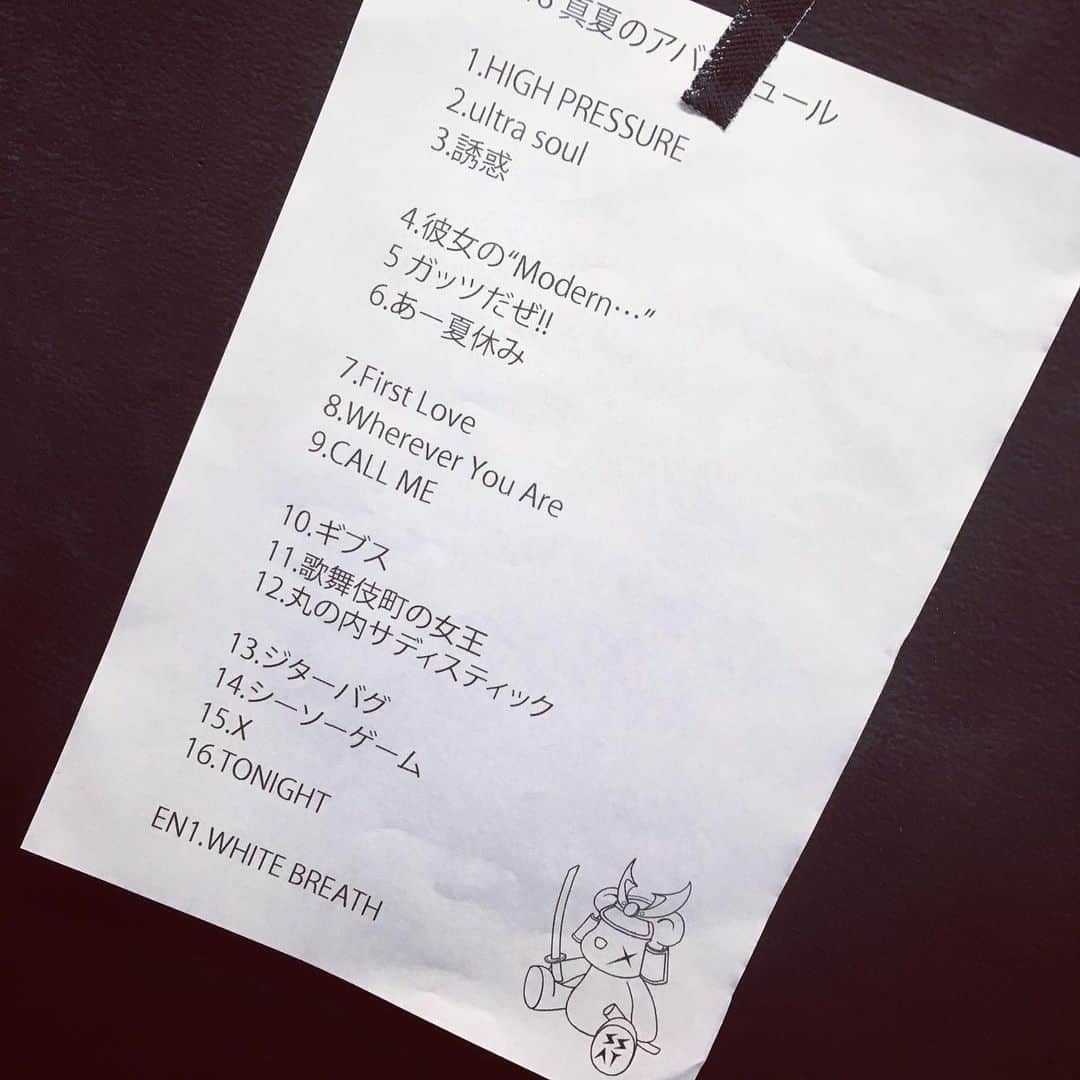 真夏のアバ ュール
1.HIGH PRESSURE
2.ultra soul
3.誘惑
4.彼女の“Modern…”
5 ガッツだぜ!!
6.あー夏休み
7.First Love
8.Wherever You Are
9.CALL ME
10.ギブス
11.歌舞伎町の女王
12.丸の内サディスティック
13.ジターバグ
14.シーソーゲーム
15.X
16.TONIGHT
EN1.WHITE BREATH
SS
AY